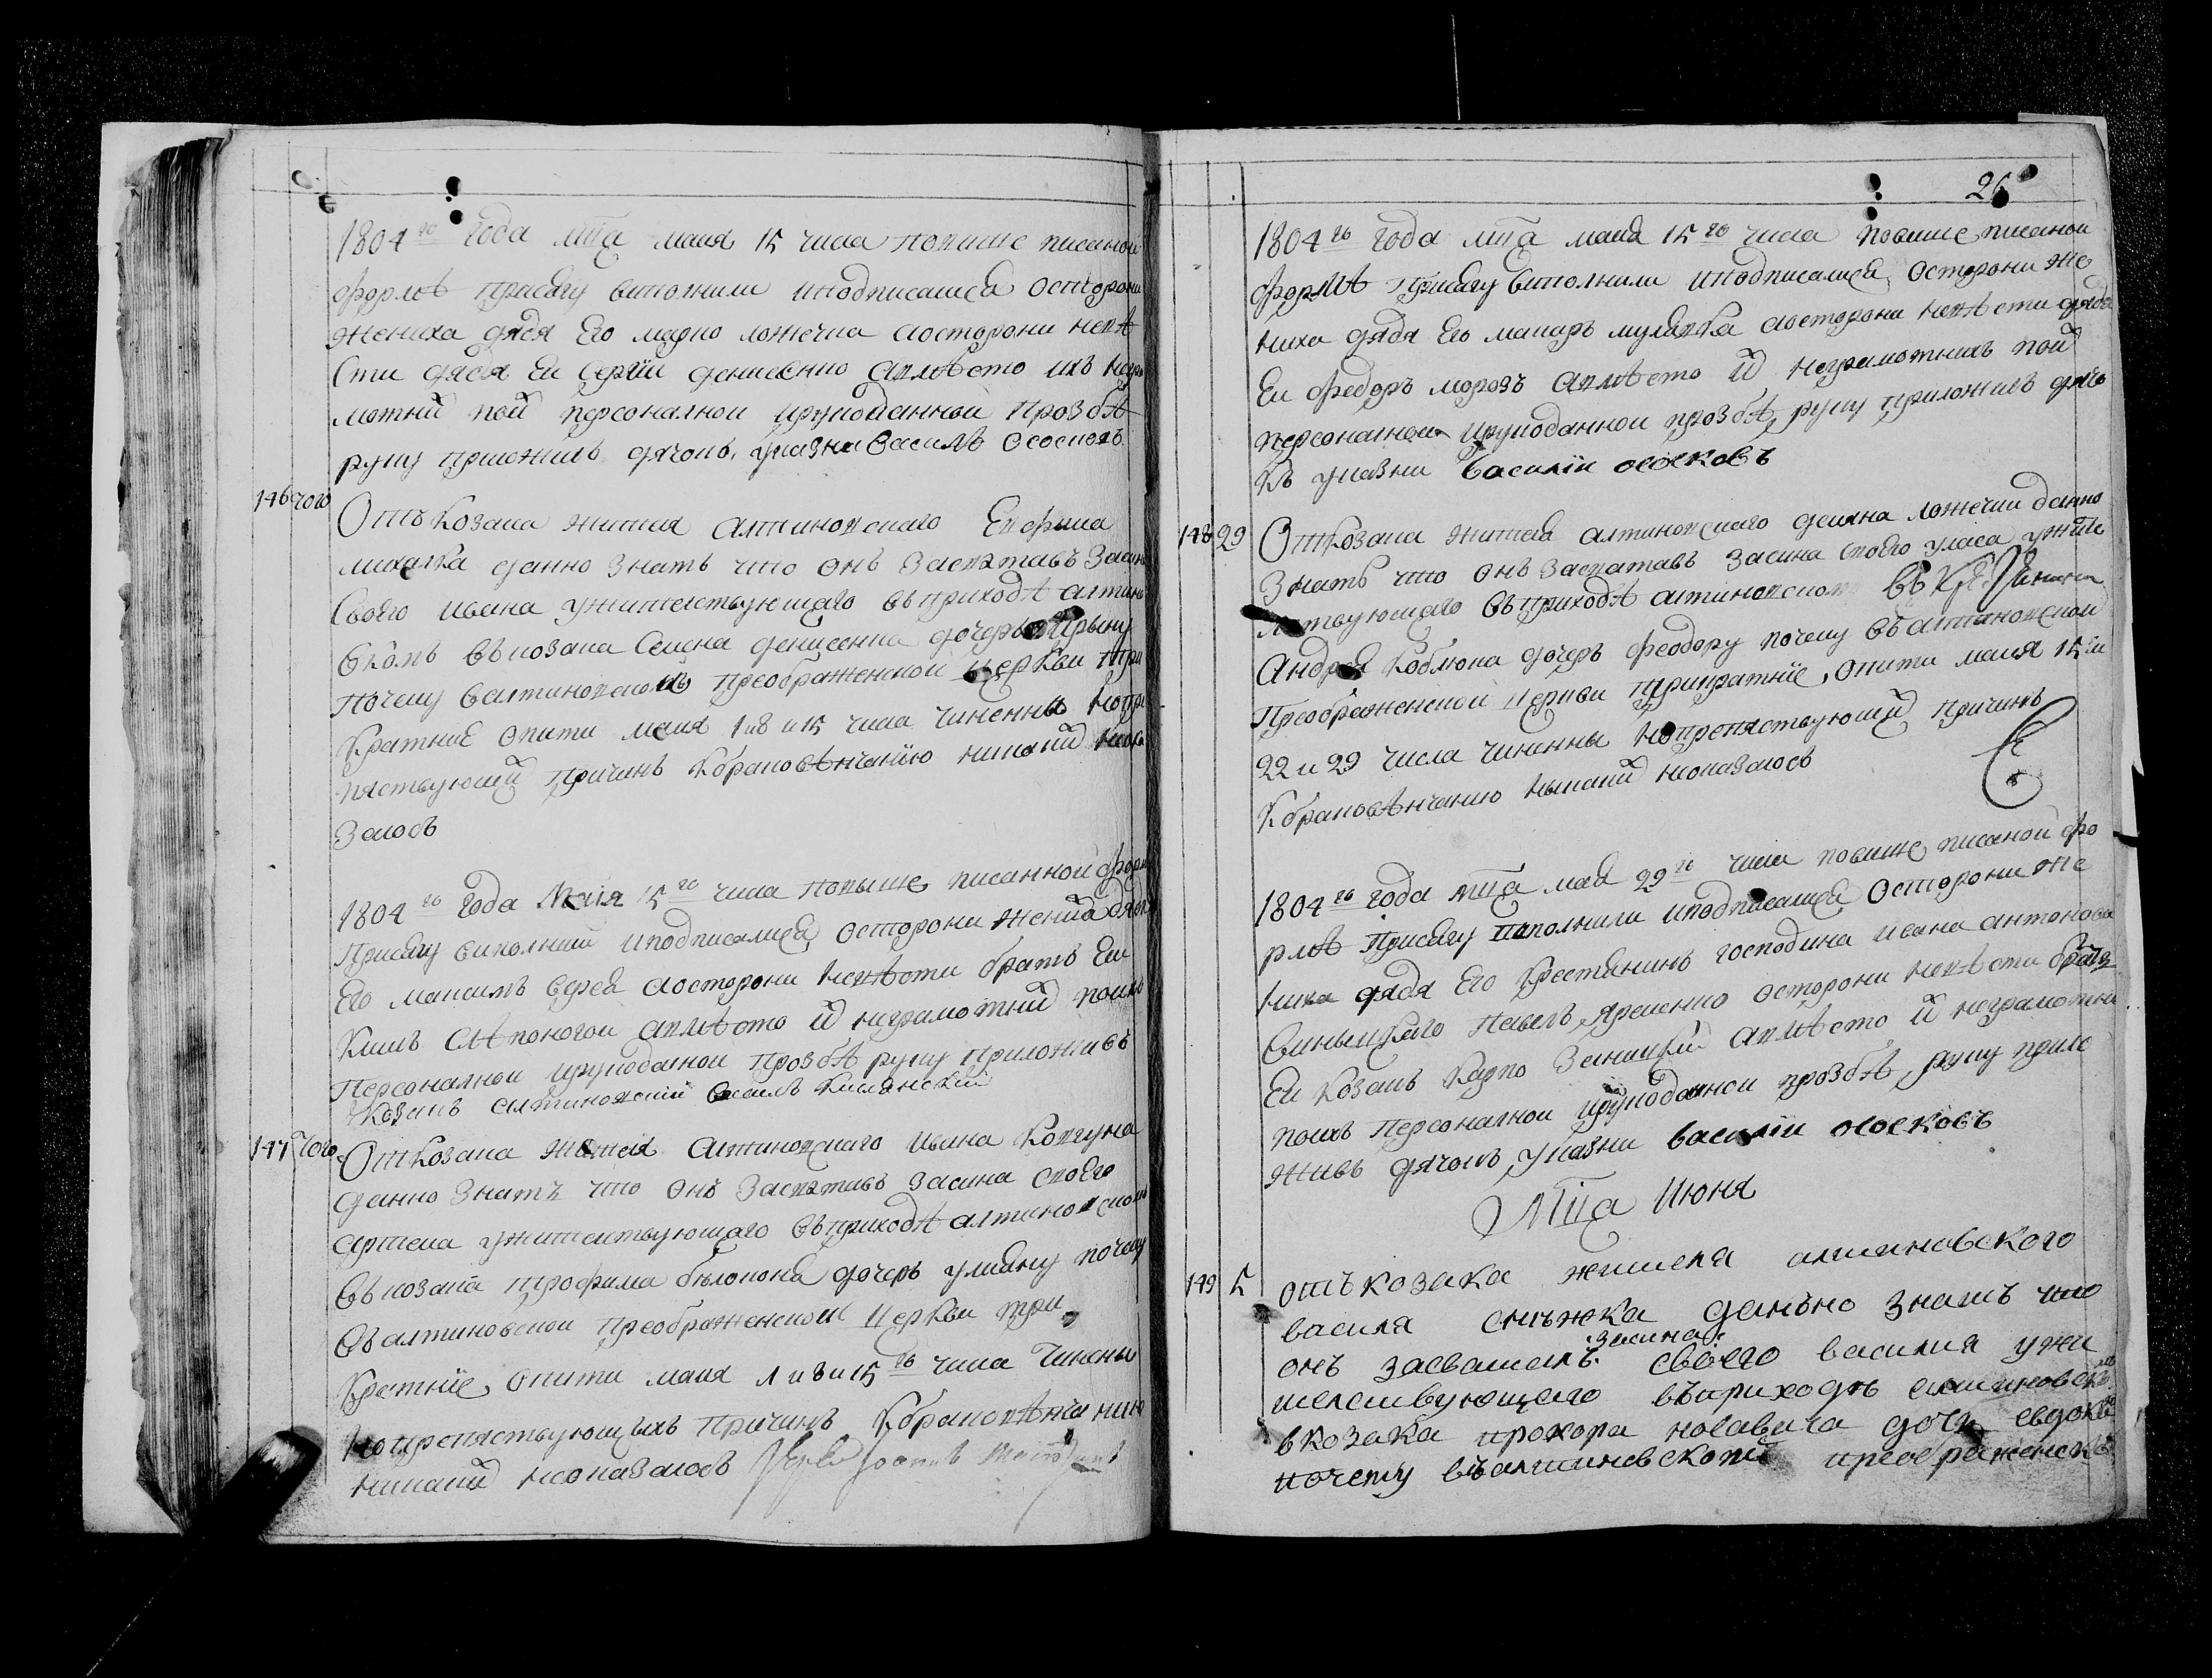 1804го года мца маия 15 числа повише писаной
форме присягу виполнили и подписалися осторони
жениха дядя его марко ложечка аосторони невѣ
сти дядя еи сергїи денисенко авмѣсто ихъ негра
мотнй пой персоналнои ируподанной прозбѣ
руку приложивъ дячокъ указни Василь Ососковъ
146 того Отъ козака жителя алтиновского Евфима
михалка данно знать что онъ засватавъ засина
Своего ивана ужителствующаго въприходѣ алтинов
скомъ въ козака Семена денисенка дочерь Ирыну
почему валтиновской преображенской церкви три
кратние опити маия 1 и 8 и 15 числа чиненны нопре
пятствующй причинъ кбраковѣнчанїю никакй непока
залось
1804го года Маия 15го числа повыше писанной форме
Присягу виполнили и подписалися осторони жениха дядя
Его максимъ середа аосторони невѣсти братъ еи
Климъ слѣпоногои авмѣсто й неграмотнй поихъ
Персоналнои ируподаной прозбѣ руку приложивъ
козакъ алтиновскїи василь Килинскїи
147 того Откозака жителя алтиновскаго ивана ковтуна
данно знать что онъ засватавъ засина своего
артема ужителствующаго въприходѣ алтиновском
въ козака трофима билокона дочерь улияну почему
въ алтиновской преображенской церкви три
кратнїе опити маия 1 и 8 и 15го числа чинены
нопрепятствующихъ причинъ кбраковѣнчанию
никакй непоказалось
26
1804го года мца маия 15го числа повише писаной
формѣ присягу виполнили и подписалися осторони же
ниха дядя его макаръ мулявка аосторони невѣсти дядя
еи федоръ морозъ авмѣсто й неграмотнихъ пой
персоналнои ируподанной прозбѣ руку приложивъ дячо
къ указни василїи ососковъ
148 29 Откозака жителя алтиновскаго демяна ложечки данно
знать что онъ засватавъ засина своего уласа ужите
лствующаго въприходѣ алтиновском въ
Андрея коблика дочерь феодору почему въ алтиновской
Преображенской церкви трикратнїе опити маия 15
22 и 29 числа чиненны нопрепятствующй причинъ
кбраковѣнчанию ныкакй непоказалось
1804го года мца мая 29го числа повише писаной фо
рмѣ присягу виполнили и подписалися осторони же
ниха дядя его крестянинъ господина ивана антонова
Павелъ яременко осторони невѣсти братъ
еи козакъ карпо авмѣсто й неграмотних
поихъ персоналнои ируподаной прозбѣ руку прило
живъ дячокъ указни василїи ососковъ
Мца Июня
149 5 отъ козака жителя алтиновского
василя снѣжка данъно знать что
онъ засваталъ засина своего василия ужи
телствующего въприходѣ алтиновском
вкозака прохора дочь евдокию
почему въалтиновской преображенской